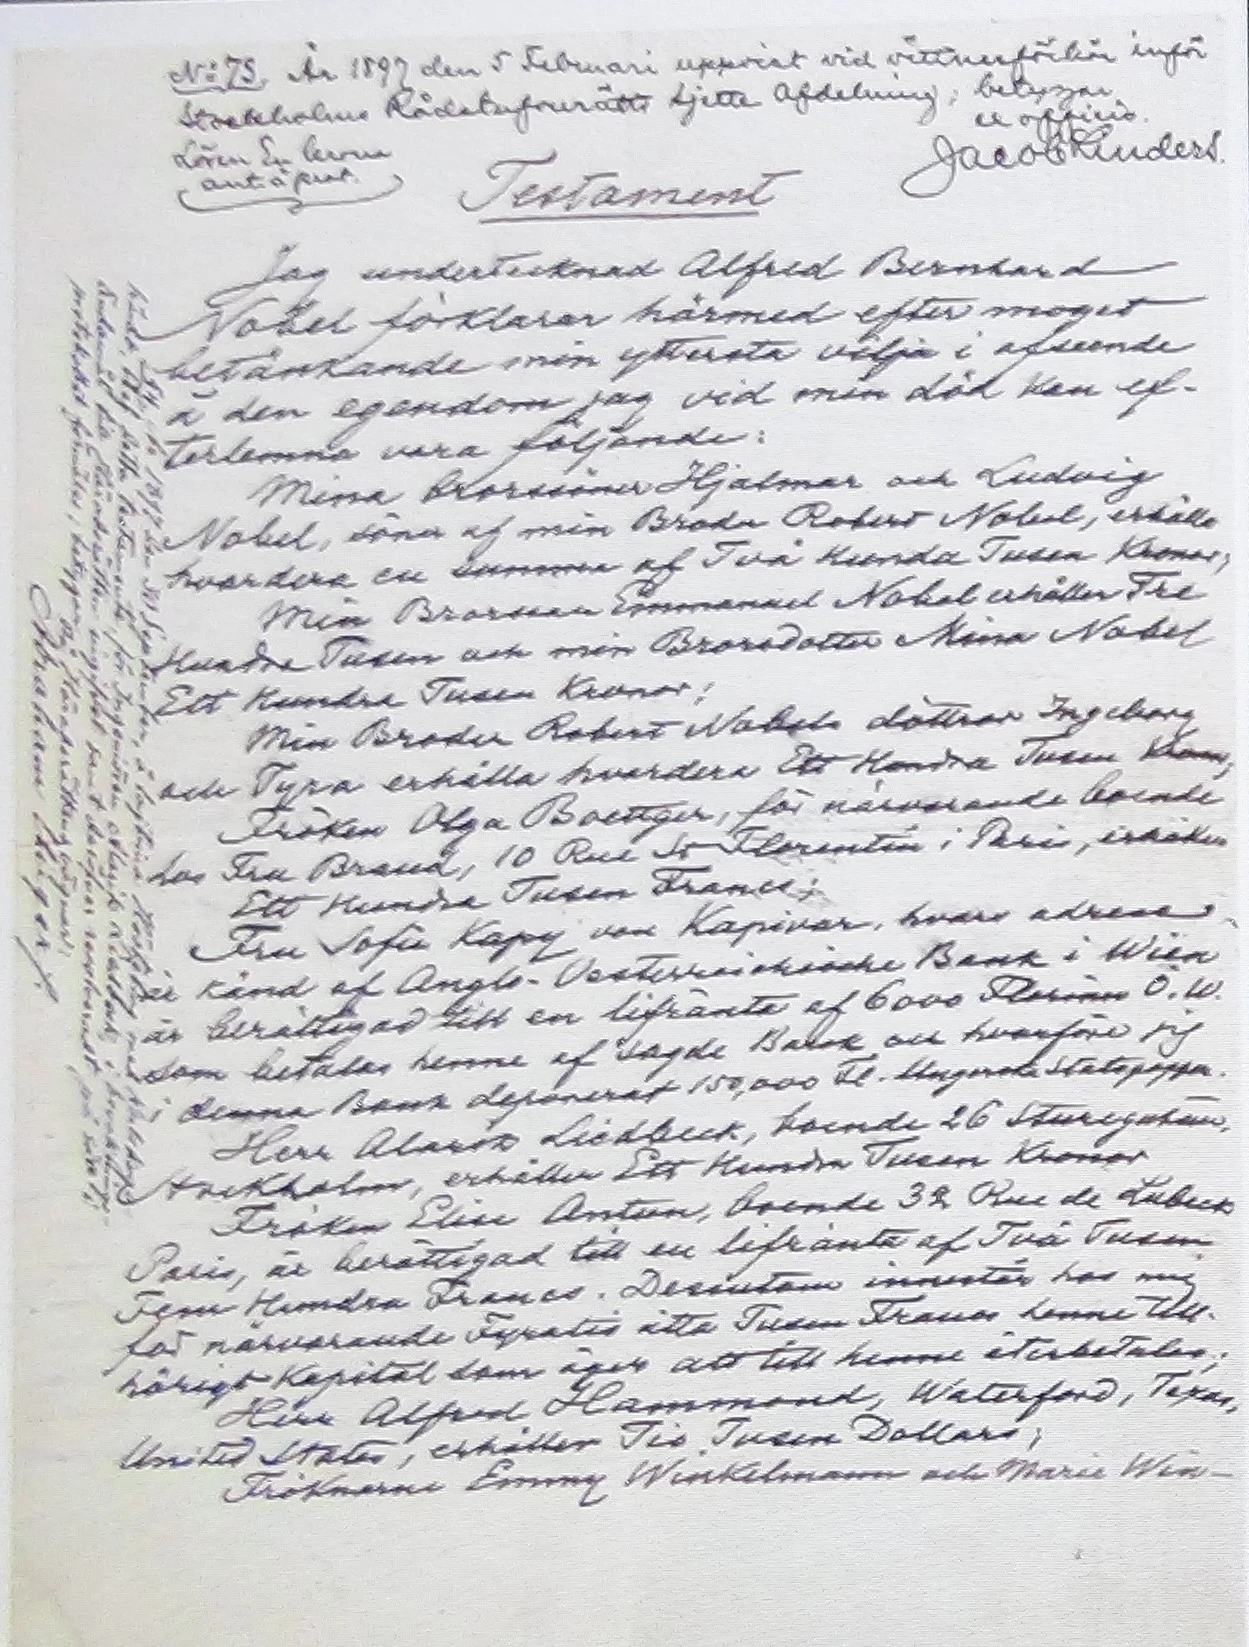 No 73. År 1897 den 5 Februari uppvist vid vittnesförhör inför
Stockholms Rådstufvurätts sjette Afdelning; betygar
Lösen En krona
ex officio.
Jacob Linders.
Testament
Jag undertecknad Alfred Bernhard
Nobel förklarar härmed efter moget
betänkande min yttersta vilja i afseende
å den egendom jag vid min död kan ef-
terlemna vara följande:
Mina brorsöner Hjalmar och Ludvig
Nobel, söner af min Broder Robert Nobel, erhålla
hvardera en summa af Två Hundra Tusen Kronor;
Min Brorson Emmanuel Nobel erhåller Tre
Hundra Tusen och min Brorsdotter Mina Nobel
Ett Hundra Tusen Kronor;
Min Broder Robert Nobels döttrar Ingeborg
och Tyra erhålla hvardera Ett Hundra Tusen Kronor;
Fröken Olga Boettger, för närvarande boende
hos Fru Brand, 10 Rue St Florentin i Paris, erhåller
Ett Hundra Tusen Francs;
Fru Sofie Kapy von Kapivar, hvars adress
är känd af Anglo-Oesterreichische Bank i Wien
är berättigad till en lifränta af 6000 Florins Ö.W.
som betalas henne af sagde Bank och hvarföre jag
i denna Bank deponerat 150,000 Fl. i Ungerska Statspapper.
Herr Alarik Liedbeck, boende 26 Sturegatan,
Stockholm, erhåller Ett Hundra Tusen Kronor
Fröken Elise Antun, boende 32 Rue de Lubeck
Paris, är berättigad till en lifränta af Två Tusen
Fem Hundra Francs. Dessutom innestår hos mig
för närvarande Fyratio åtta Tusen Francs henne till-
hörigt Kapital som äger att till henne återbetalas;
Herr Alfred Hammond, Waterford, Texas,
United States, erhåller Tio Tusen Dollars;
Fröknarne Emmy Winkelmann och Marie Win-